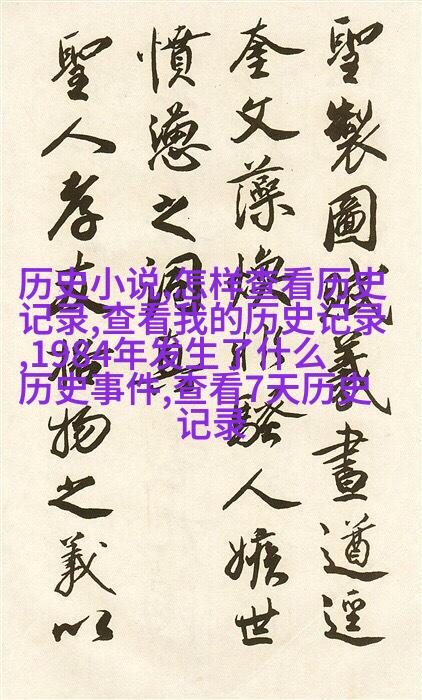 聖製圖義畫遒逕
奎文藻煥非騷人嫉世
憤懣之詞
聖人孝友物之義以
历史小说,怎样查看历史
记录,查看我的历史记录
,1984年发生了什么
历史事件,查看7天历史
记录